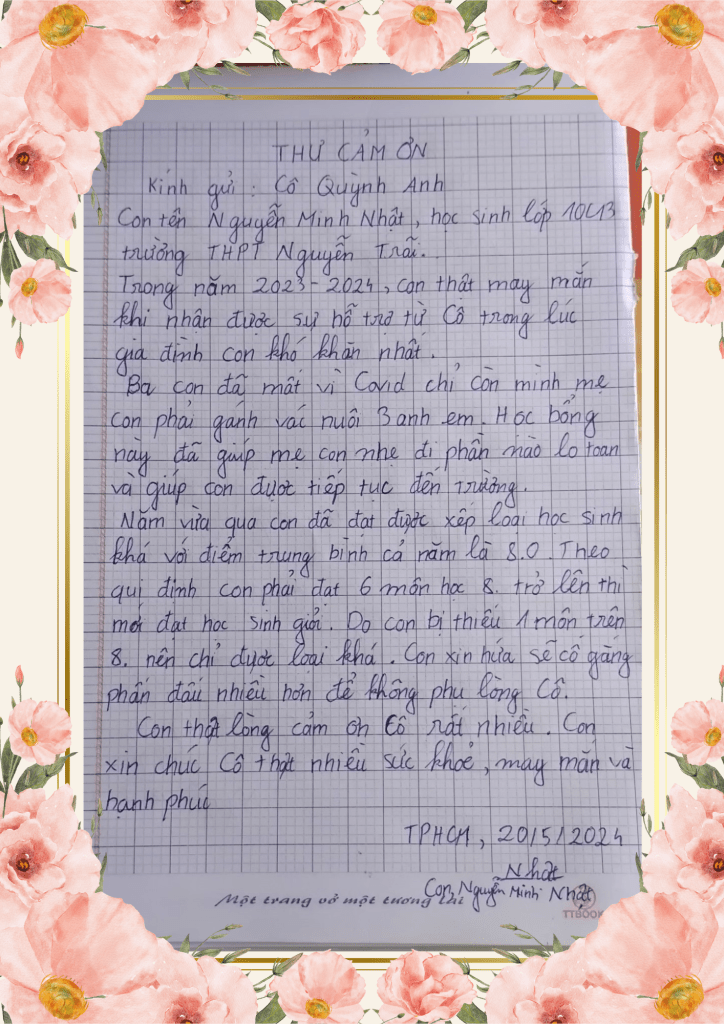 THƯ CẢM ƠN
Kính gửi : Cô Quỳnh Anh
Con tên Nguyễn Minh Nhật, học sinh lớp 10C13
trường THPT Nguyễn Trãi.
Trong năm 2023-2024, con thật may mắn
khi nhận được sự hỗ trợ từ Cô trong lúc
gia đình con khó khăn nhất.
Ba con đã mất vì Covid chỉ còn mình mẹ
con phải gánh vác nuôi 3 anh em. Học bổng
này đã giúp mẹ con nhẹ đi phần nào lo toan
và giúp con được tiếp tục đến trường.
Năm vừa qua con đã đạt được xếp loại học sinh
khá với điểm trung bình cả năm là 8.0. Theo
qui định con phải đạt 6 môn học 8. trở lên thì
mới đạt học sinh giỏi. Do con bị thiếu 1 môn trên
8. nên chỉ được loại khá. Con xin hứa sẽ cố gắng
phấn đấu nhiều hơn để không phụ lòng Cô.
Con thật lòng cảm ơn Cô rất nhiều. Con
xin chúc Cô thật nhiều sức khoẻ, may mắn và
hạnh phúc
TPHCM, 20/5/2024
Nhật
Con Nguyễn Minh Nhật
Một trang vở một tương lai
TTBOOK